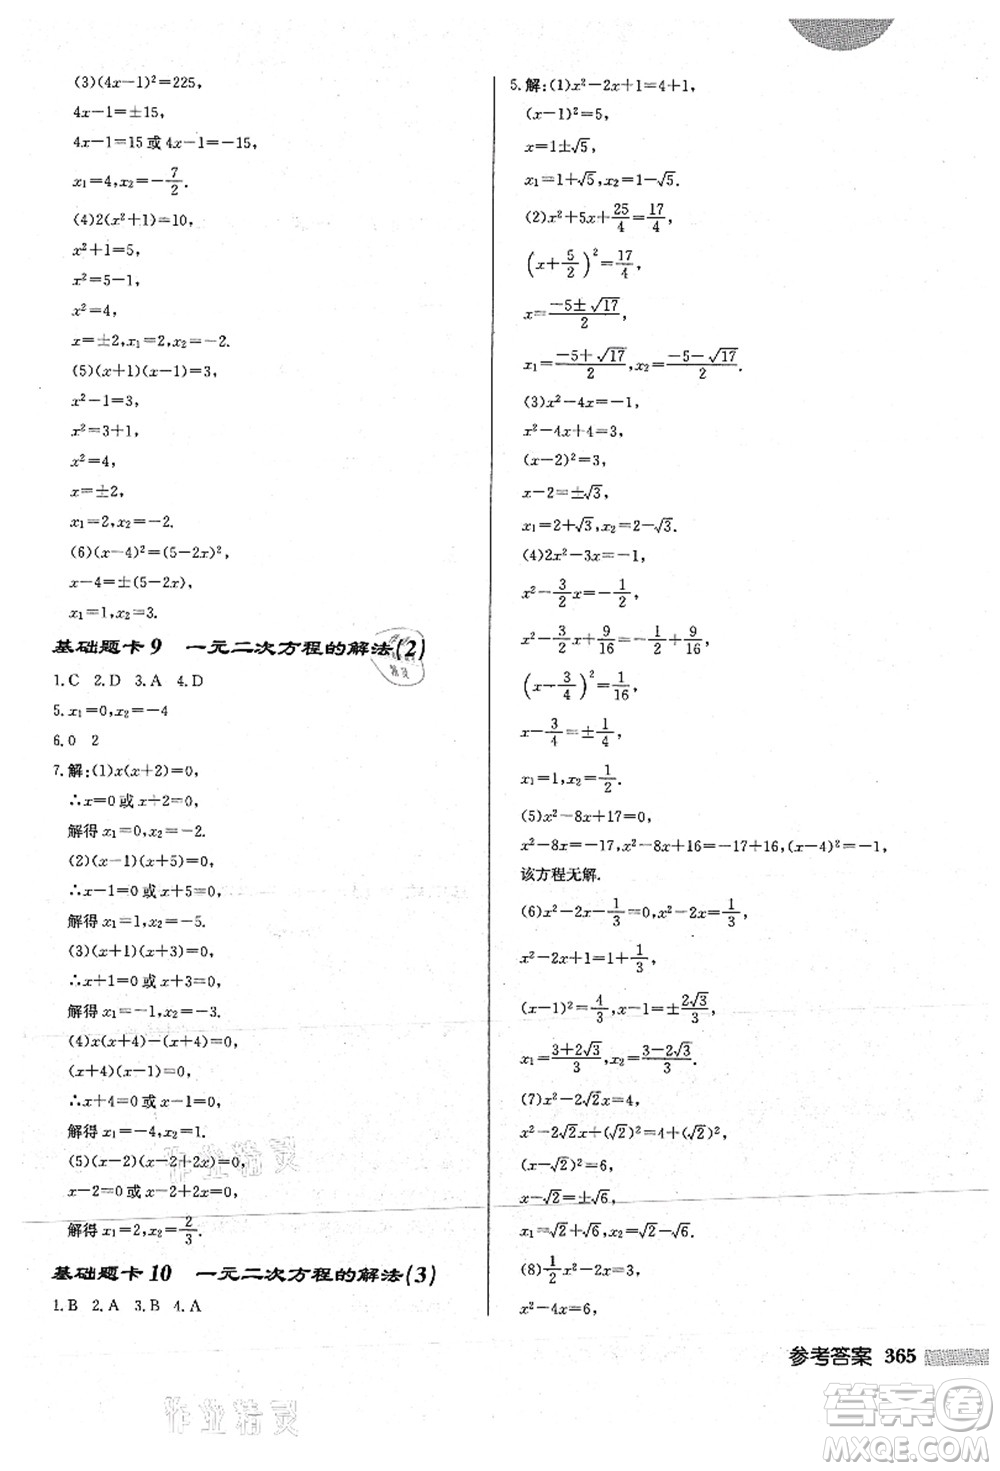 (3)(4x-1)²=225,
4x-1=±15,
4x-1=15 或 4x-1=-15,
x₁=4,x₂=-7/2.
(4)2(x²+1)=10,
x²+1=5,
x²=5-1,
x²=4,
x=±2,x₁=2,x₂=-2.
(5)(x+1)(x-1)=3,
x²-1=3,
x²=3+1,
x²=4,
x=±2,
x₁=2,x₂=-2.
(6)(x-4)²=(5-2x)²,
x-4=±(5-2x),
x₁=1,x₂=3.
基础题卡 9 一元二次方程的解法(2)
1.C 2.D 3.A 4.D
5.x₁=0,x₂=-4
6.0 2
7.解:(1)x(x+2)=0,
∴x=0 或 x+2=0,
解得 x₁=0,x₂=-2.
(2)(x-1)(x+5)=0,
∴x-1=0 或 x+5=0,
解得 x₁=1,x₂=-5.
(3)(x+1)(x+3)=0,
∴x+1=0 或 x+3=0,
解得 x₁=-1,x₂=-3.
(4)x(x+4)-(x+4)=0,
(x+4)(x-1)=0,
∴x+4=0 或 x-1=0,
解得 x₁=-4,x₂=1.
(5)(x-2)(x-2+2x)=0,
x-2=0 或 x-2+2x=0,
解得 x₁=2,x₂=2/3.
基础题卡 10 一元二次方程的解法(3)
1.B 2.A 3.B 4.A
5.解:(1)x²-2x+1=4+1,
(x-1)²=5,
x=1±√5,
x₁=1+√5,x₂=1-√5.
(2)x²+5x+25/4=17/4,
(x+5/2)²=17/4,
x=(-5±√17)/2,
x₁=(-5+√17)/2,x₂=(-5-√17)/2.
(3)x²-4x=-1,
x²-4x+4=3,
(x-2)²=3,
x-2=±√3,
x₁=2+√3,x₂=2-√3.
(4)2x²-3x=-1,
x²-3/2x=-1/2,
x²-3/2x+9/16=-1/2+9/16,
(x-3/4)²=1/16,
x-3/4=±1/4,
x₁=1,x₂=1/2.
(5)x²-8x+17=0,
x²-8x=-17,x²-8x+16=-17+16,(x-4)²=-1,
该方程无解.
(6)x²-2x-1/3=0,x²-2x=1/3,
x²-2x+1=1/3+1,
(x-1)²=4/3,x-1=±2√3/3,
x₁=(3+2√3)/3,x₂=(3-2√3)/3.
(7)x²-2√2x=4,
x²-2√2x+(√2)²=4+(√2)²,
(x-√2)²=6,
x-√2=±√6,
x₁=√2+√6,x₂=√2-√6.
(8)1/2x²-2x=0,
x²-4x=0,
参考答案 365
作业精灵
作业精灵
答案圈
MXQE.COM